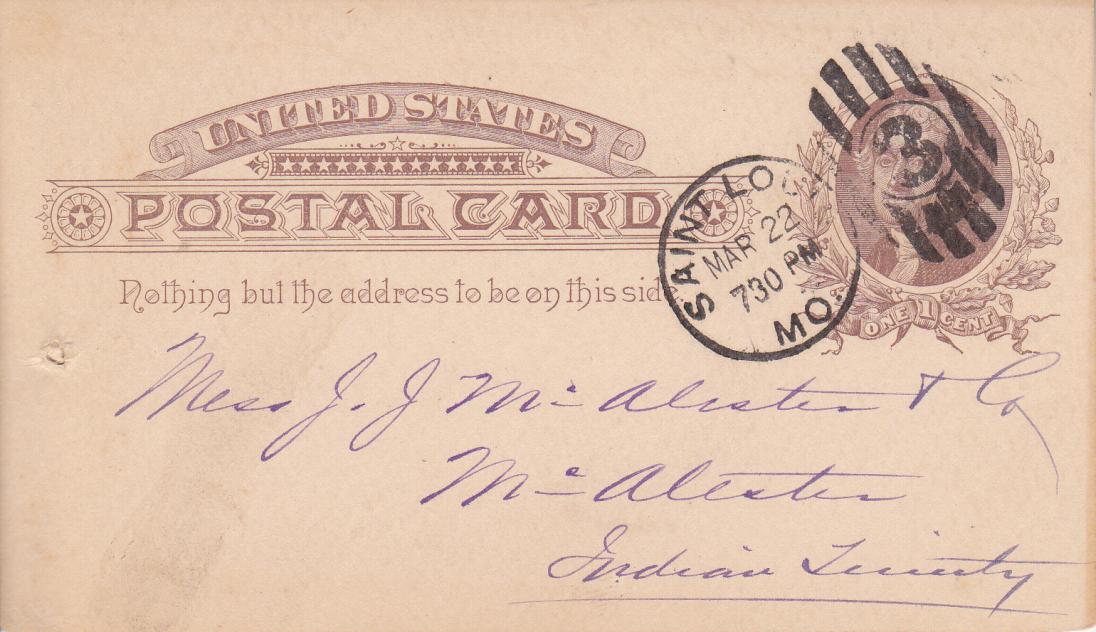 UNITED STATES
POSTAL CARD
Nothing but the address to be on this sid
SAINT LOUIS
MAR 22
730 PM
MO.
3
ONE 1 CENT
Mess J. J Mc Alester & Co
Mc Alester
Indian Terrirty